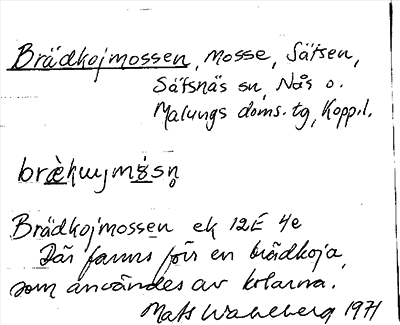 Brädkojmossen, mosse, Sätsen,
Säfsnäs sn, Nås o.
Malungs doms. tg, Koppl.
Brädkojmossen ek 12E 4e
Där fanns förr en brädkoja,
som användes av kolarna.
Mats Wahlberg 1971